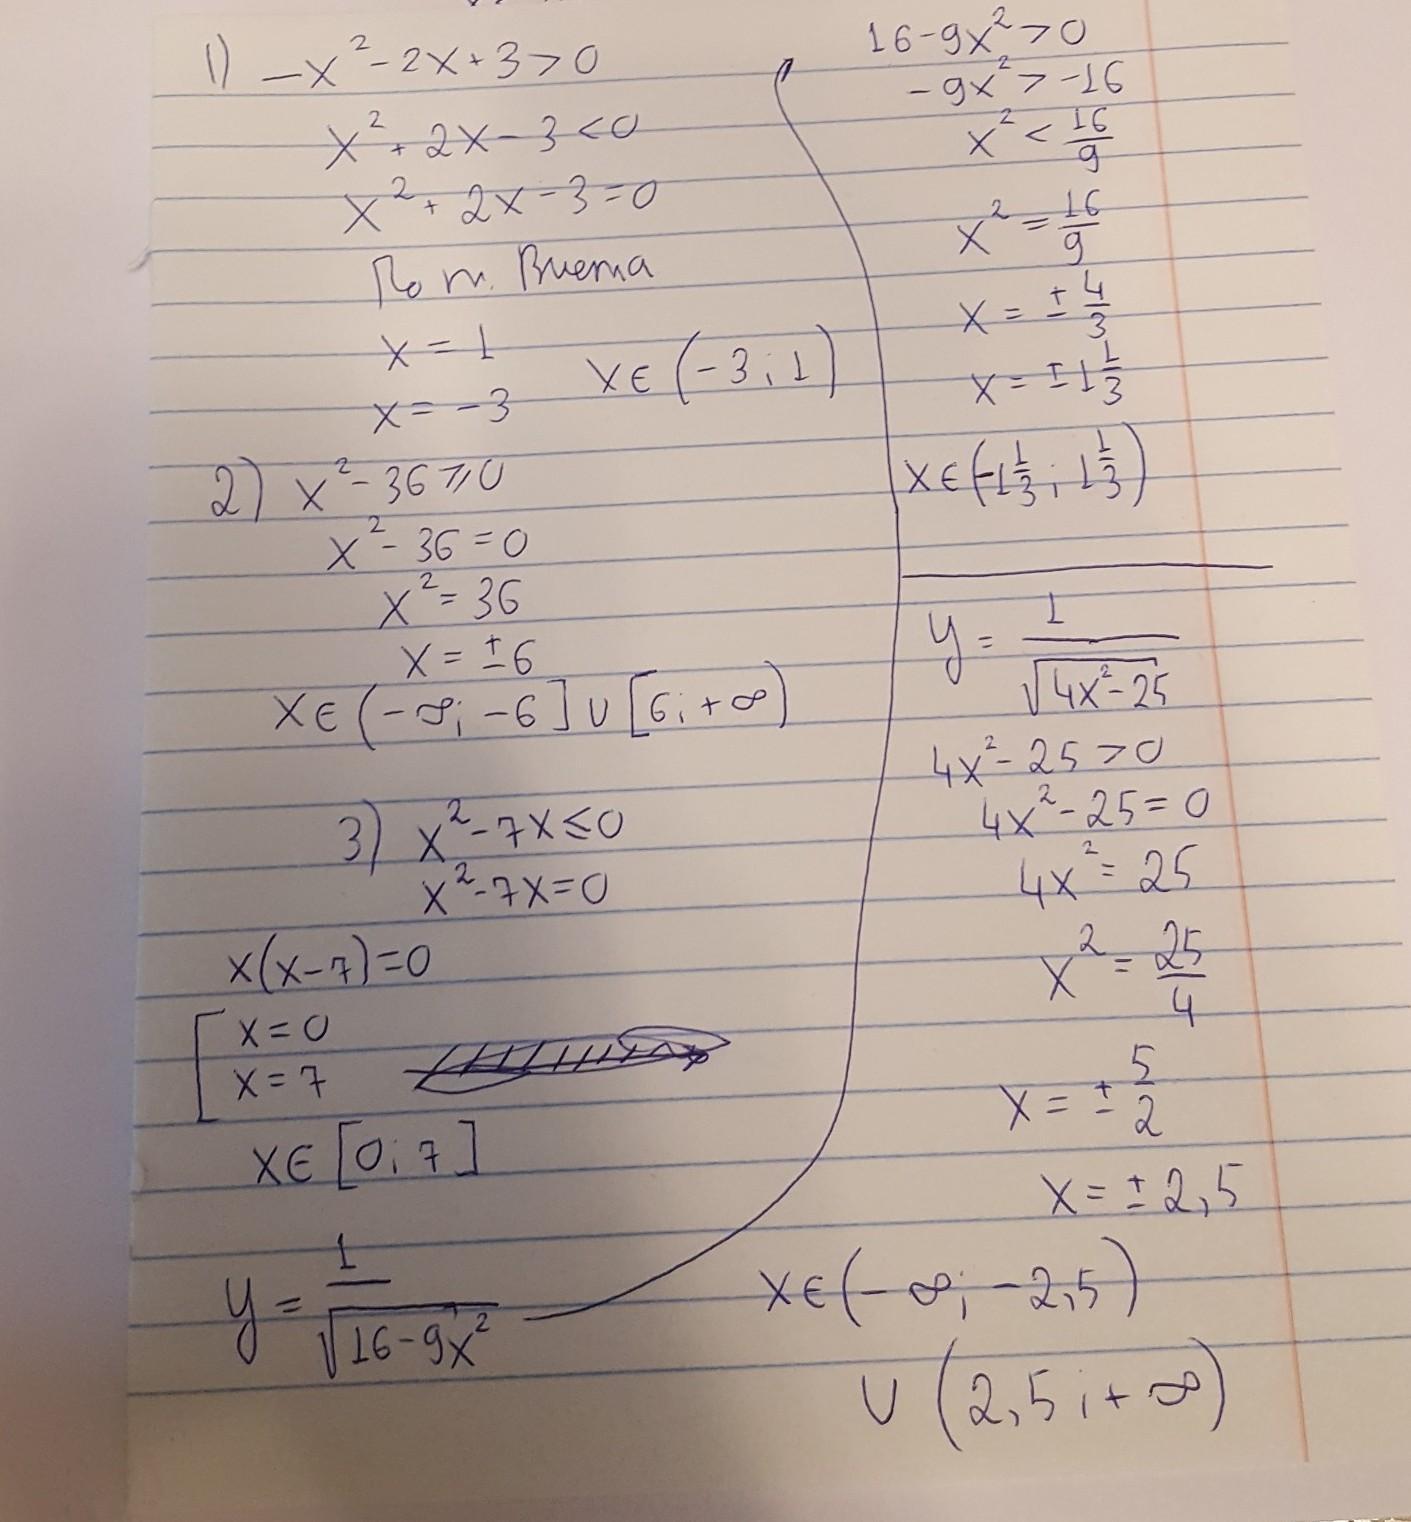 1) -x²-2x+3>0
x²+2x-3<0
x²+2x-3=0
По т. Виета
x=1
x=-3
x∈(-3;1)
2) x²-36⩾0
x²-36=0
x²=36
x=±6
x∈(-∞;-6]∪[6;+∞)
3) x²-7x≤0
x²-7x=0
x(x-7)=0
[x=0
x=7
x∈[0;7]
y=1/√(16-9x²)
16-9x²>0
-9x²>-16
x²<16/9
x²=16/9
x=±4/3
x=±1 1/3
x∈(-1 1/3; 1 1/3)
y=1/√(4x²-25)
4x²-25>0
4x²-25=0
4x²=25
x²=25/4
x=±5/2
x=±2,5
x∈(-∞;-2,5)
∪(2,5;+∞)